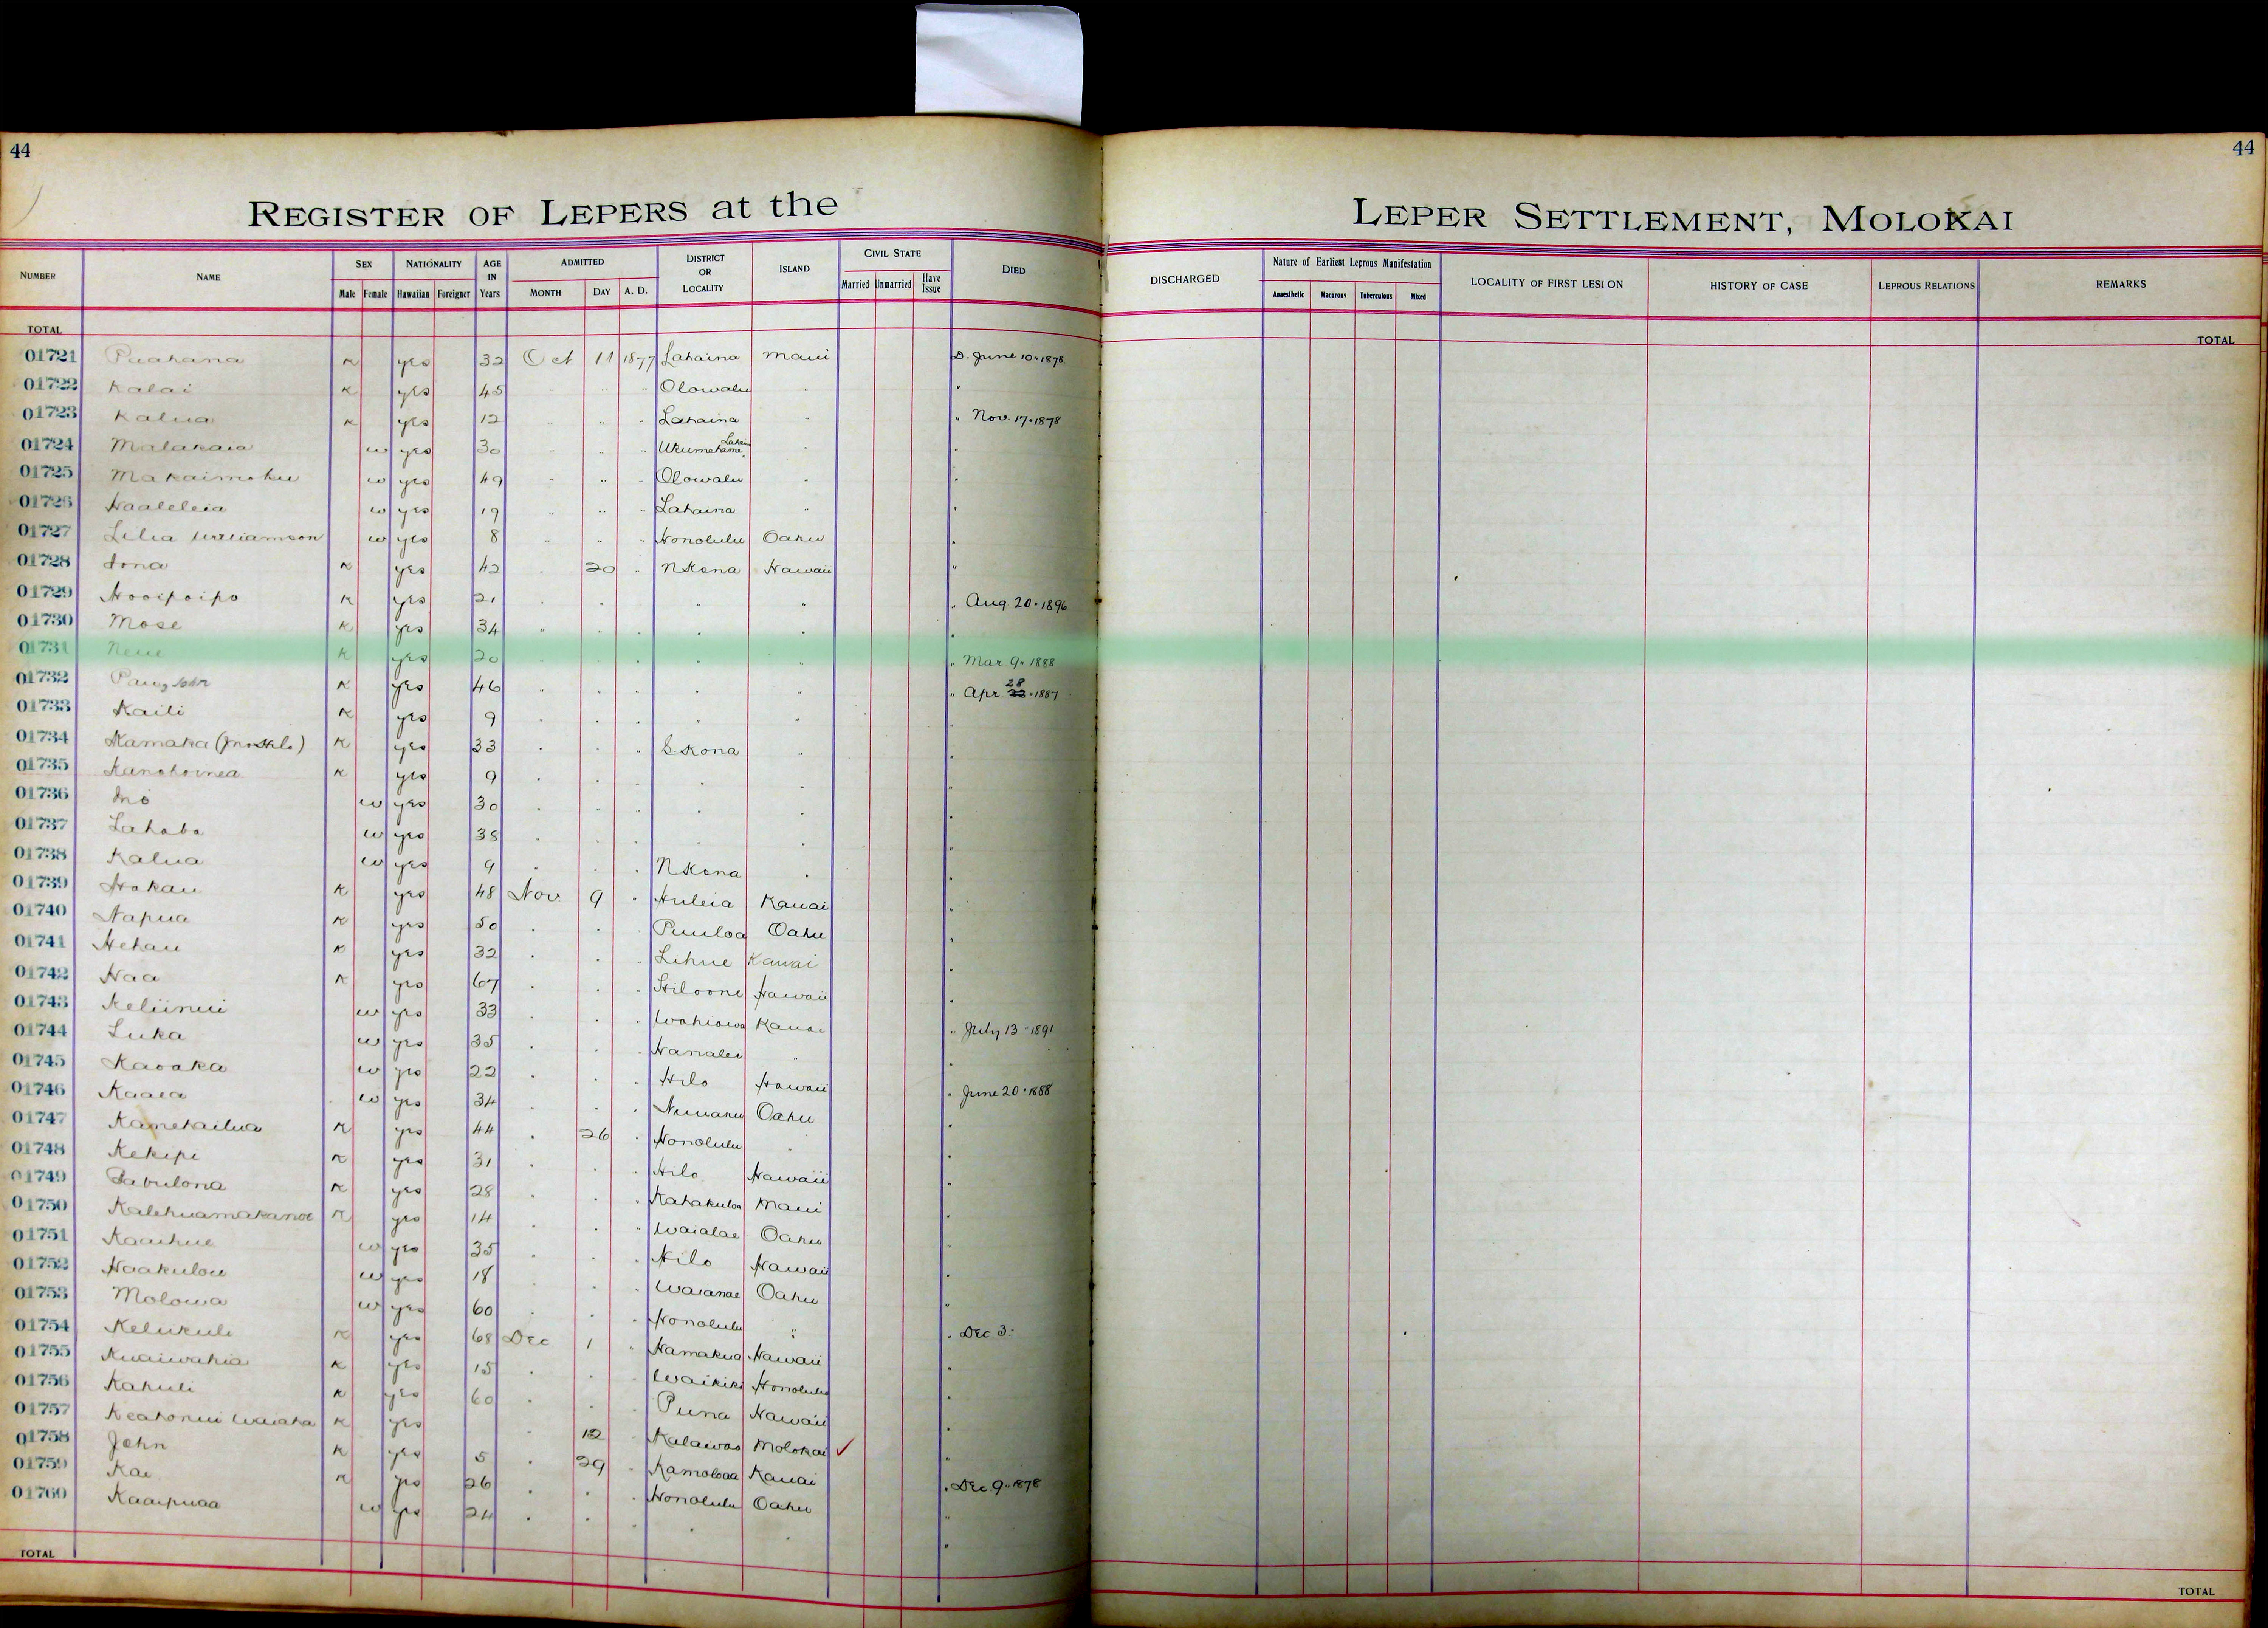 44
44
REGISTER OF LEPERS at the LEPER SETTLEMENT, MOLOKAI
NUMBER NAME SEX NATIONALITY AGE IN Years ADMITTED DISTRICT OR LOCALITY ISLAND CIVIL STATE DIED DISCHARGED Nature of Earliest Leprous Manifestation LOCALITY OF FIRST LESION HISTORY OF CASE LEPROUS RELATIONS REMARKS
Male Female Hawaiian Foreigner MONTH DAY A. D. Married Unmarried Have Issue Anaesthetic Macurous Tuberculous Mixed
TOTAL TOTAL
01721 Puahana K yes 32 Oct 11 1877 Lahaina Maui D. June 10 " 1878
01722 Kalai K yes 45 " " " Olowalu " "
01723 Kalua K yes 12 " " " Lahaina " " Nov. 17 " 1878
01724 Malakaia w yes 30 " " " Ukumehame " "
01725 Makaimoku w yes 49 " " " Olowalu " "
01726 Haaleleia w yes 19 " " " Lahaina " "
01727 Lilia Williamson w yes 8 " " " Honolulu Oahu "
01728 Iona K yes 42 " 20 " N Kona Hawaii "
01729 Hooipoipo K yes 21 " " " " " " Aug. 20 " 1896
01730 Mose K yes 34 " " " " " "
01731 Neue K yes 20 " " " " " " Mar. 9 " 1888
01732 K yes 46 " " " " " " Apr 28 " 1887
01733 Kaili K yes 9 " " " " " "
01734 Kamaka K yes 33 " " " S. Kona " "
01735 K yes 9 " " " " " "
01736 w yes 30 " " " " " "
01737 w yes 38 " " " " " "
01738 Kalua w yes 9 " " " N Kona " "
01739 Hokau K yes 48 Nov 9 " Huleia Kauai "
01740 Napua K yes 50 " " " Puuloa Oahu "
01741 Hehau K yes 32 " " " Lihue Kauai "
01742 Haa K yes 67 " " " Hiloone Hawaii "
01743 Keliinui w yes 33 " " " Wahiawa Kauai " July 13 " 1891
01744 Luka w yes 35 " " " Hanalei " "
01745 Kaoaka w yes 22 " " " Hilo Hawaii " June 20 " 1888
01746 Kaaea w yes 34 " " " Nuuanu Oahu "
01747 Kamehailua K yes 44 " 26 " Honolulu " "
01748 Kekipi K yes 31 " " " Hilo Hawaii "
01749 Sabulona K yes 28 " " " Kahakuloa Maui "
01750 Kalehuamakanoe K yes 14 " " " Waialae Oahu "
01751 Kaaihue w yes 35 " " " Hilo Hawaii "
01752 Haakulou w yes 18 " " " Waianae Oahu "
01753 Molowa w yes 60 " " " Honolulu " " Dec 3.
01754 Kelikuli K yes 68 Dec 1 " Hamakua Hawaii "
01755 Kuaiwahia K yes 15 " " " Waikiki Honolulu "
01756 Kahuli K yes 60 " " " Puna Hawaii "
01757 Keahonui Waiaha K yes " 12 " Kalawao Molokai ✓ "
01758 John K yes 5 " 29 " Kamoloaa Kauai " Dec 9 " 1878
01759 Kai K yes 26 " " " Honolulu Oahu "
01760 Kaaipuaa w yes 24 " " " " " "
TOTAL TOTAL